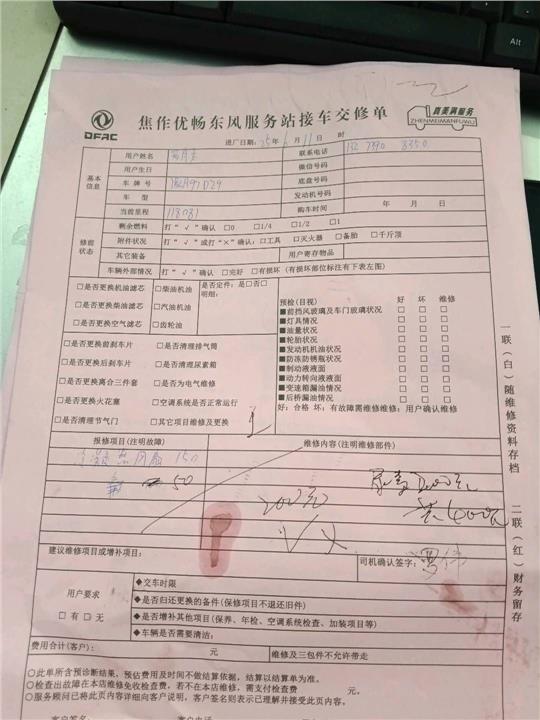 Alt
DFAC
焦作优畅东风服务站接车交修单
真美满服务
ZHENMEIMANFUWU
进厂日期: 25年 6月 11日 时
基本信息
用户姓名
联系电话
用户生日
微信号码
车牌号
底盘号码
车型
发动机号码
当前里程 118031
购车时间 年 月 日
修前状态
剩余燃料 打“√”确认 □0 □1/4 □1/2 □1
附件状况 打“√”或打“×”确认: □工具 □灭火器 □备胎 □千斤顶
其它装备
用户寄存物品
车辆外部情况 打“√”确认 □完好 □有损坏 (有损坏部位标注有下表左图)
□是否更换机油滤芯 □柴油机油
□是否更换柴油滤芯 □汽油机油
□是否更换空气滤芯 □齿轮油
是否定件: 是□否□
明细:
□是否更换前刹车片 □是否清理排气筒
□是否更换后刹车片 □是否清理尿素箱
□是否更换离合三件套 □是否为电气维修
□是否更换火花塞 □空调系统是否正常运行
□是否清理节气门 □其它项目维修及更换
预检(目视) 好 坏 维修
■前挡风玻璃及车门玻璃状况 □ □ □
■灯具情况 □ □ □
■油量状况 □ □ □
■轮胎状况 □ □ □
■发动机机油状况 □ □ □
■防冻防锈瓶状况 □ □ □
■制动液液面 □ □ □
■动力转向液液面 □ □ □
■变速箱漏油情况 □ □ □
■后桥漏油情况 □ □ □
好: 合格 坏: 有故障需维修维修: 用户确认维修
报修项目(注明故障)
维修内容(注明维修部件)
150
50
200元
建议维修项目或增补项目:
司机确认签字:
用户要求
□有□无
◆交车时限
◆是否归还更换的备件(保修项目不退还旧件)
◆是否增补其他项目(保养、年检、空调系统检查、加装项目等)
◆车辆是否需要清洁:
费用合计(客户): 元
维修及三包件不允许带走
○此单所含预诊断结果, 预估费用及时间不做结算依据, 结算以结算单为准。
○检查出故障在本店维修免收检查费, 若不在本店维修, 需支付检查费 元。
○服务顾问已将此页内容详细向客户说明, 客户签名则表示已理解并接受此页内容。
客户签名
客户电话
一联(白)随维修资料存档
二联(红)财务留存